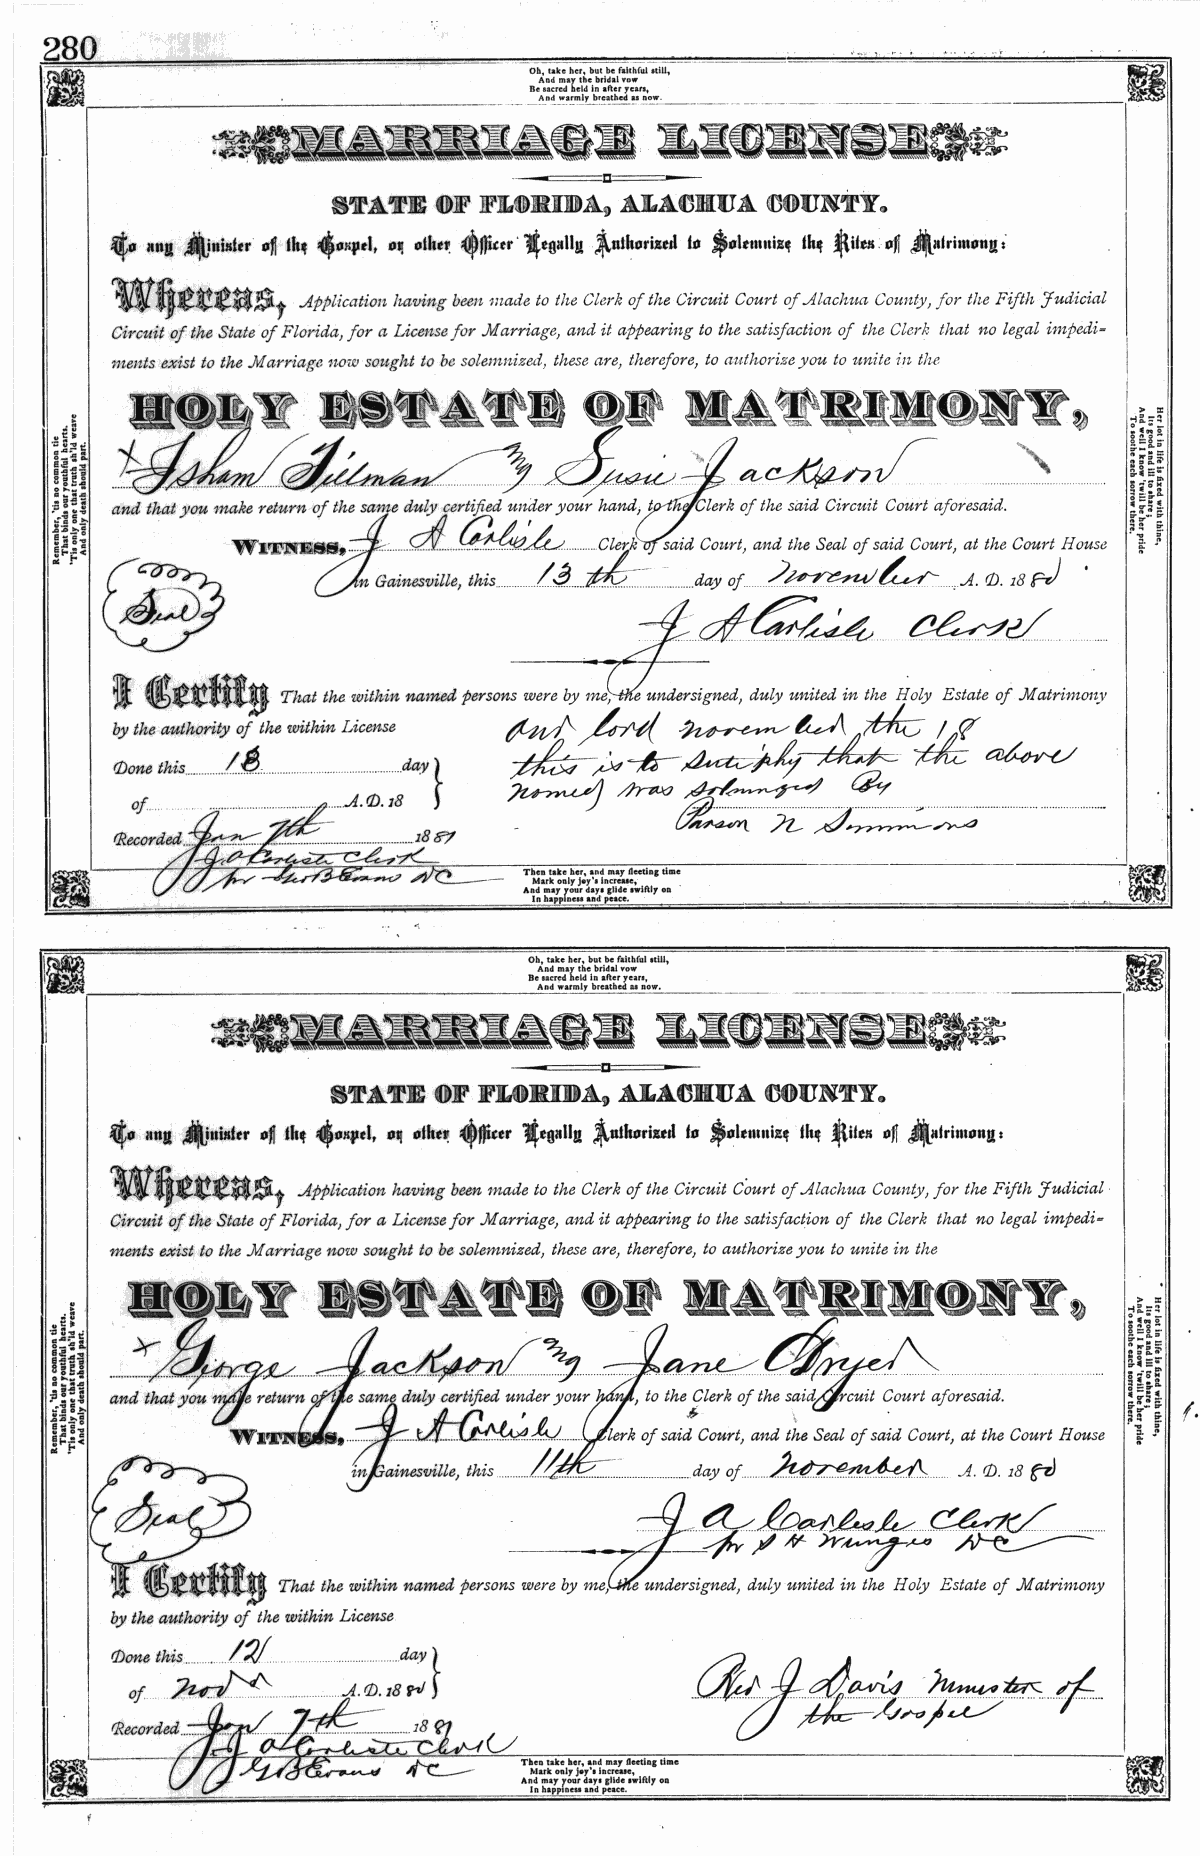 280
Oh, take her, but be faithful still,
And may the bridal vow
Be sacred held in after years,
And warmly breathed as now.
MARRIAGE LICENSE
STATE OF FLORIDA, ALACHUA COUNTY.
To any Minister of the Gospel, or other Officer Legally Authorized to Solemnize the Rites of Matrimony:
Whereas, Application having been made to the Clerk of the Circuit Court of Alachua County, for the Fifth Judicial
Circuit of the State of Florida, for a License for Marriage, and it appearing to the satisfaction of the Clerk that no legal impedi-
ments exist to the Marriage now sought to be solemnized, these are, therefore, to authorize you to unite in the
HOLY ESTATE OF MATRIMONY,
x Isham Tillman and Susie Jackson
and that you make return of the same duly certified under your hand, to the Clerk of the said Circuit Court aforesaid.
WITNESS, J A Carlisle Clerk of said Court, and the Seal of said Court, at the Court House
in Gainesville, this 13th day of November A. D. 1880
Seal
J A Carlisle Clerk
I Certify That the within named persons were by me, the undersigned, duly united in the Holy Estate of Matrimony
by the authority of the within License
our lord november the 18
Done this 18 day
this is to sutiphy that the above
named was solmniged By
of A. D. 18
Parson N Simmons
Recorded Jan 7th 1881
J A Carlisle Clerk
per Geo B Evans DC
Remember, 'tis no common tie
That binds our youthful hearts.
'Tis only one that truth sh'ld weave
And only death should part.
Her lot in life is fixed with thine,
Its good and ill to share;
And well I know 'twill be her pride
To soothe each sorrow there.
Then take her, and may fleeting time
Mark only joy's increase,
And may your days glide swiftly on
In happiness and peace.
Oh, take her, but be faithful still,
And may the bridal vow
Be sacred held in after years,
And warmly breathed as now.
MARRIAGE LICENSE
STATE OF FLORIDA, ALACHUA COUNTY.
To any Minister of the Gospel, or other Officer Legally Authorized to Solemnize the Rites of Matrimony:
Whereas, Application having been made to the Clerk of the Circuit Court of Alachua County, for the Fifth Judicial
Circuit of the State of Florida, for a License for Marriage, and it appearing to the satisfaction of the Clerk that no legal impedi-
ments exist to the Marriage now sought to be solemnized, these are, therefore, to authorize you to unite in the
HOLY ESTATE OF MATRIMONY,
x George Jackson and Jane Dryer
and that you make return of the same duly certified under your hand, to the Clerk of the said Circuit Court aforesaid.
WITNESS, J A Carlisle Clerk of said Court, and the Seal of said Court, at the Court House
in Gainesville, this 11th day of November A. D. 1880
Seal
J A Carlisle Clerk
per S H DC
I Certify That the within named persons were by me, the undersigned, duly united in the Holy Estate of Matrimony
by the authority of the within License
Done this 12 day
of Nov A. D. 1880
Rev J Davis Minister of
the Gospel
Recorded Jan 7th 1881
J A Carlisle Clerk
G B Evans DC
Remember, 'tis no common tie
That binds our youthful hearts.
'Tis only one that truth sh'ld weave
And only death should part.
Her lot in life is fixed with thine,
Its good and ill to share;
And well I know 'twill be her pride
To soothe each sorrow there.
Then take her, and may fleeting time
Mark only joy's increase,
And may your days glide swiftly on
In happiness and peace.